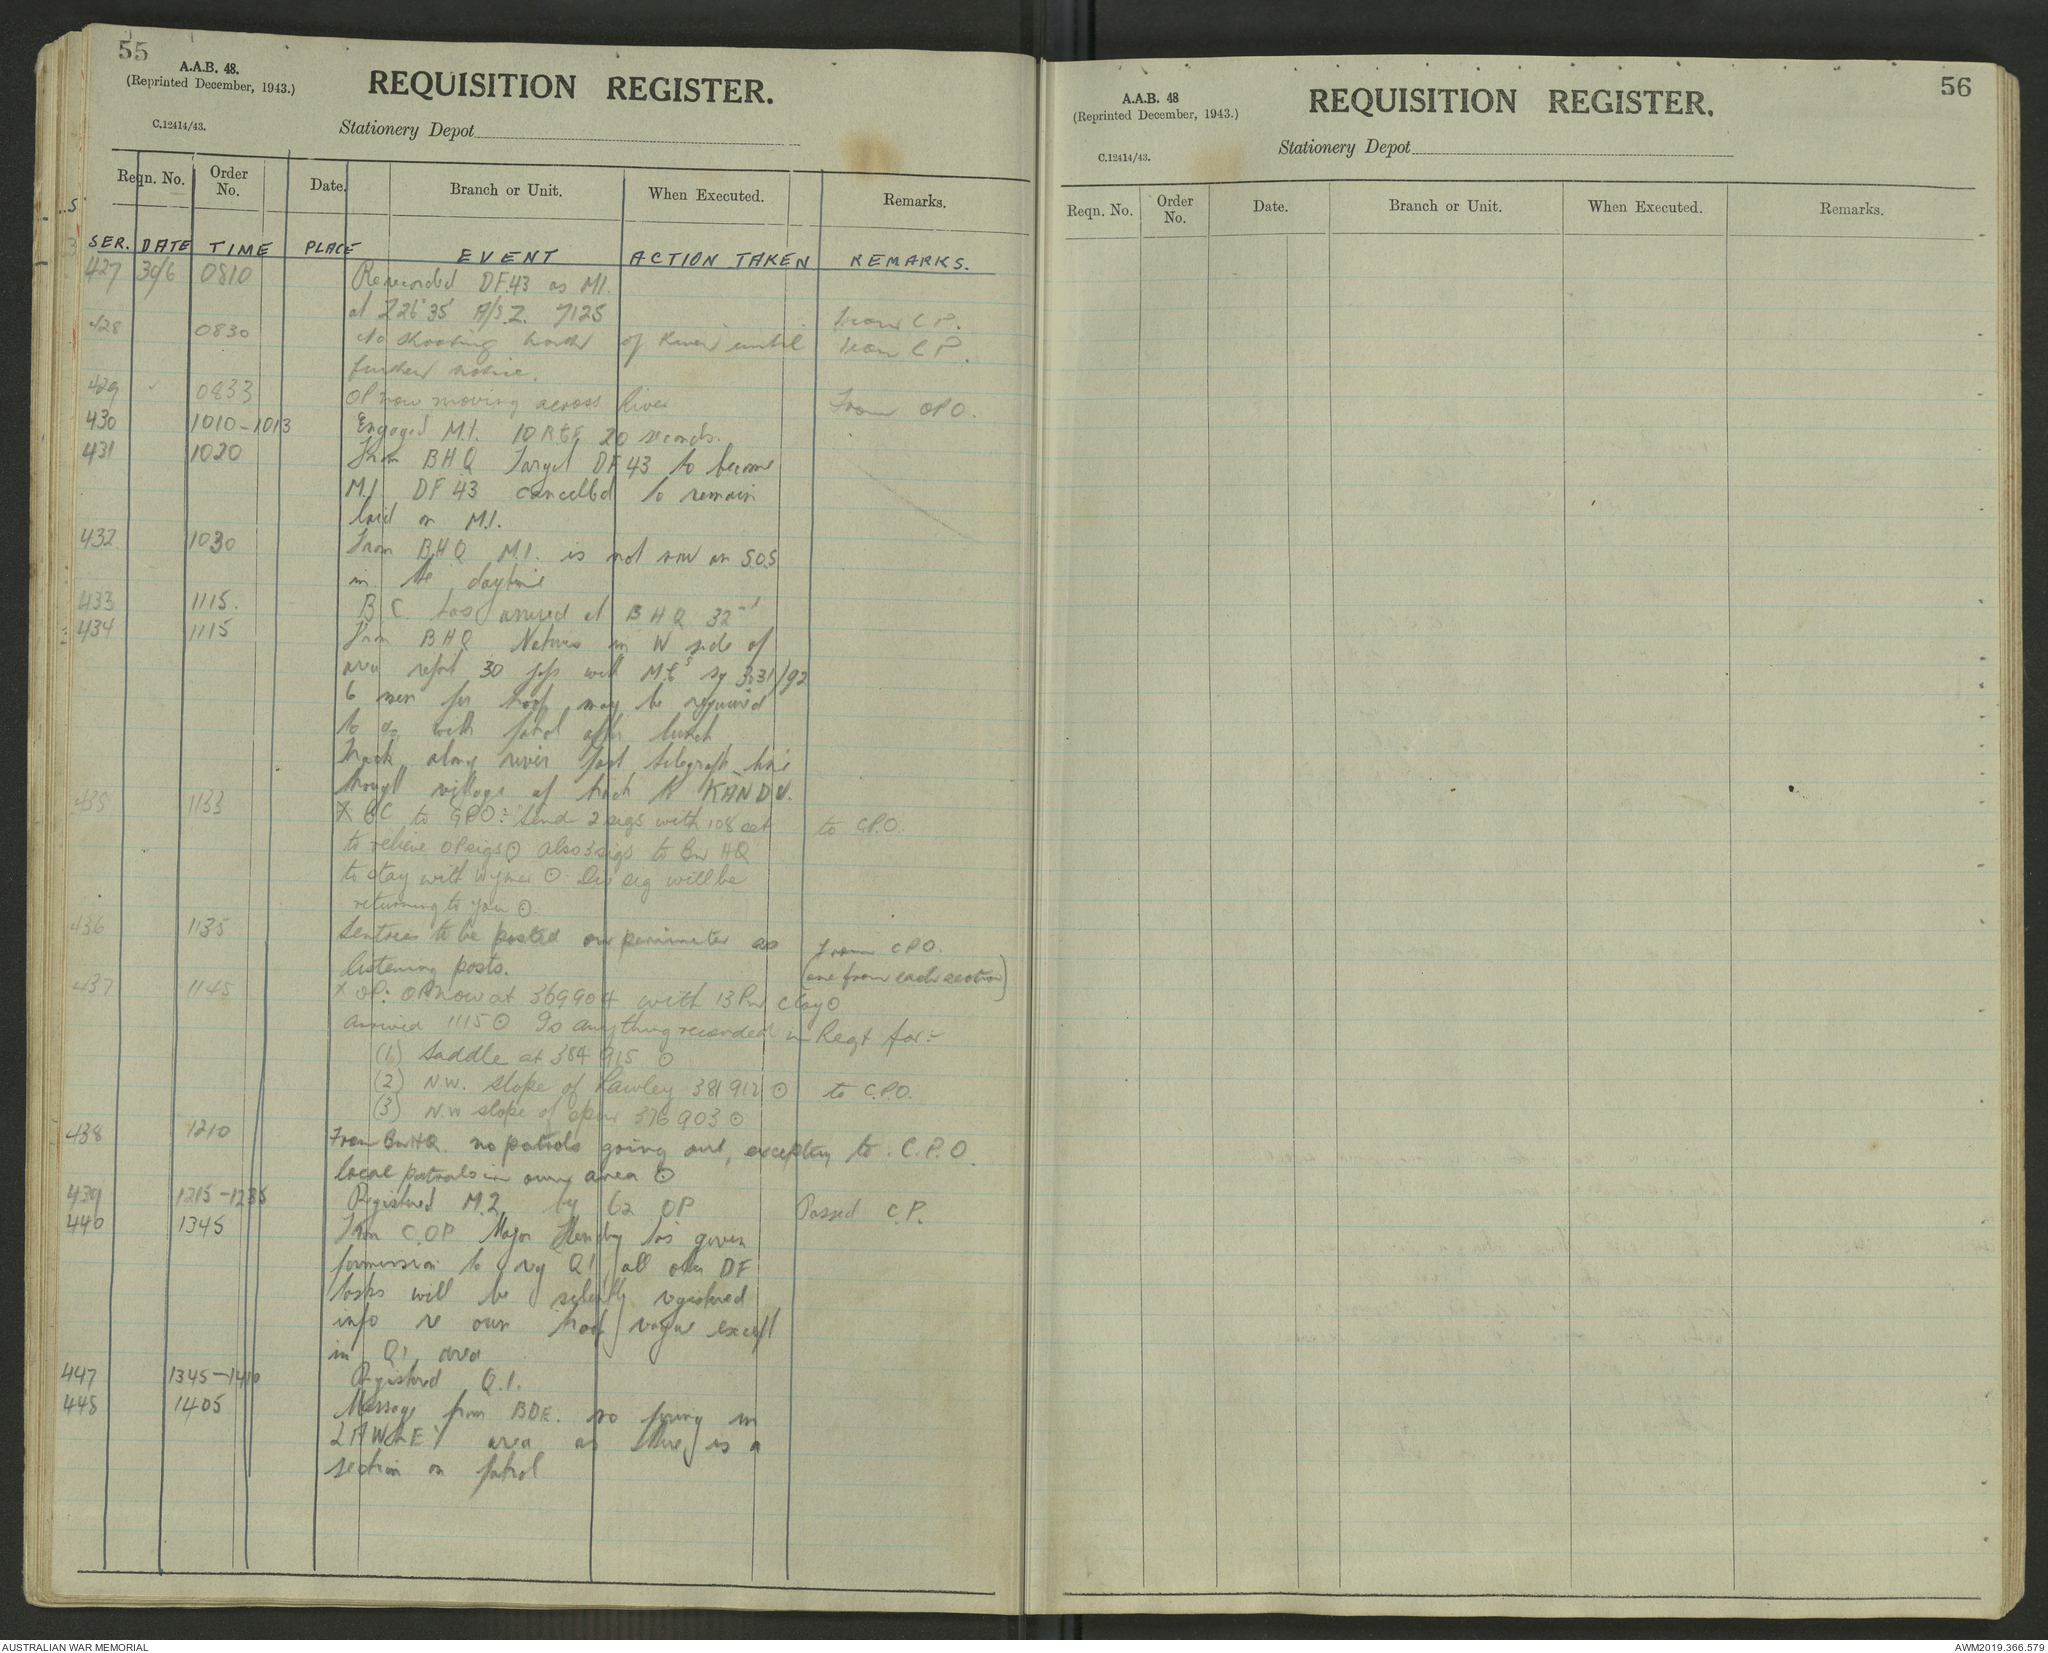 55
A.A.B. 48.
(Reprinted December, 1943.)
REQUISITION REGISTER.
C.12414/43.
Stationery Depot
Reqn. No. Order No. Date. Branch or Unit. When Executed. Remarks.
SER. DATE TIME PLACE EVENT ACTION TAKEN REMARKS.
427 30/6 0810 Rerecorded DF.43 as M1.
at Z26°35' A/S.Z. 7125 From C.P.
428 0830 No shooting North of River until From C.P.
further notice.
429 0833 OP now moving across River From OPO.
430 1010-1013 Engaged M.1. 10 R.G.F. 20 seconds.
431 1020 From BHQ Target DF 43 to become
M.1 DF 43 cancelled to remain
laid on M.1.
432 1030 From BHQ M.1. is not now an S.O.S
in the daytime
433 1115. B.C. has arrived at BHQ 32
434 1115 From BHQ Natives in W side of
area report 30 japs with M.Gs sq 3231/92
6 men for troop may be required
to go with patrol after lunch
track along river past telegraph line
through village of track to KANDU.
435 1133 X BC to GPO:- Send 2 sigs with 108 set to C.P.O.
to relieve OP sigs ⊙ also 3 sigs to Bn HQ
to stay with Wymer ⊙ Div sig will be
returning to you ⊙
436 1135 Sentries to be posted on perimeter as From CPO.
listening posts. (one from each section)
437 1145 X OP: OP now at 369904 with 13 Pn C Coy ⊙
arrived 1115 ⊙ Is anything recorded in Regt for:-
(1) Saddle at 384915 ⊙
(2) N.W. slope of Lawley 381912 ⊙ to C.P.O.
(3) N.W slope of spur 376903 ⊙
438 1210 From Bn HQ. no patrols going out, excepting to C.P.O.
local patrols in own area ⊙
439 1215-1235 Registered M.2 by 62 OP Passed C.P.
440 1345 From C.OP Major Hendry has given
permission to reg Q1 all other DF
tasks will be silently registered
info re our troop vague except
in Q1 area
447 1345-1410 Registered Q.1.
448 1405 Message from BDE. no firing in
LAWLEY area as there is a
section on patrol
56
A.A.B. 48
(Reprinted December, 1943.)
REQUISITION REGISTER.
C.12414/43.
Stationery Depot
Reqn. No. Order No. Date. Branch or Unit. When Executed. Remarks.
AUSTRALIAN WAR MEMORIAL
AWM2019.366.579